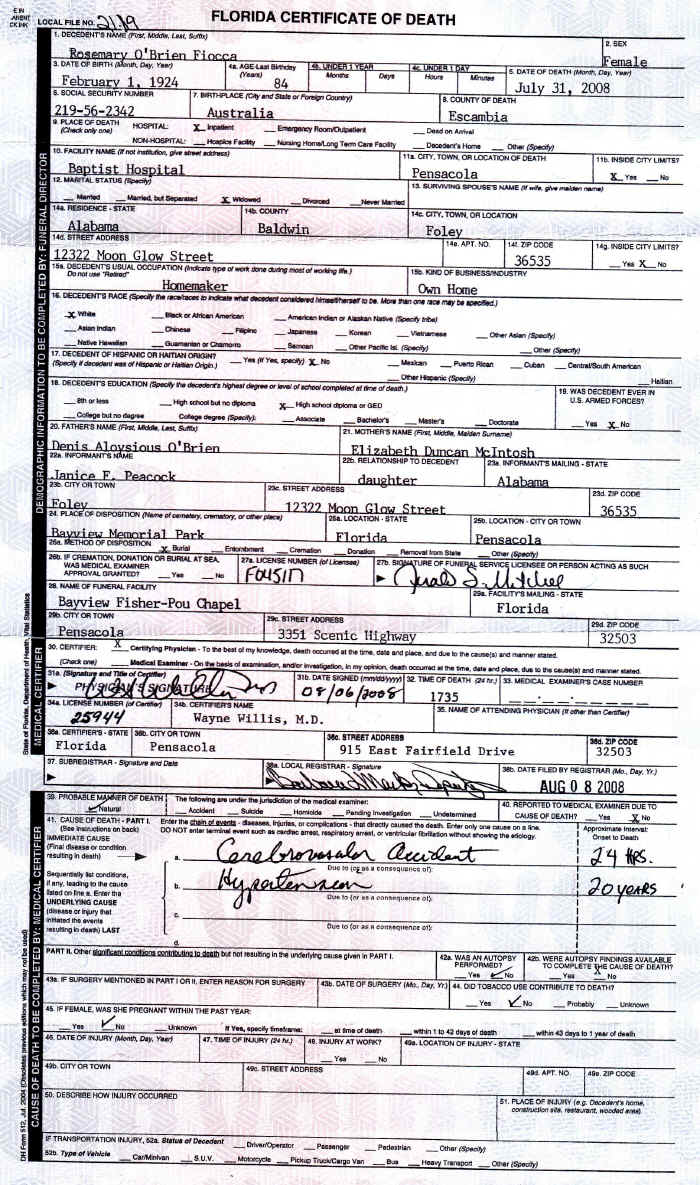 FLORIDA CERTIFICATE OF DEATH
LOCAL FILE NO. 2119
1. DECEDENT'S NAME (First, Middle, Last, Suffix)
Rosemary O'Brien Fiocca
2. SEX
Female
3. DATE OF BIRTH (Month, Day, Year)
February 1, 1924
4a. AGE-Last Birthday (Years)
84
4b. UNDER 1 YEAR
Months Days
4c. UNDER 1 DAY
Hours Minutes
5. DATE OF DEATH (Month, Day, Year)
July 31, 2008
6. SOCIAL SECURITY NUMBER
219-56-2342
7. BIRTHPLACE (City and State or Foreign Country)
Australia
8. COUNTY OF DEATH
Escambia
9. PLACE OF DEATH (Check only one)
HOSPITAL: X Inpatient Emergency Room/Outpatient Dead on Arrival
NON-HOSPITAL: Hospice Facility Nursing Home/Long Term Care Facility Decedent's Home Other (Specify)
10. FACILITY NAME (If not institution, give street address)
Baptist Hospital
11a. CITY, TOWN, OR LOCATION OF DEATH
Pensacola
11b. INSIDE CITY LIMITS?
X Yes No
12. MARITAL STATUS (Specify)
Married Married, but Separated X Widowed Divorced Never Married
13. SURVIVING SPOUSE'S NAME (If wife, give maiden name)
14a. RESIDENCE - STATE
Alabama
14b. COUNTY
Baldwin
14c. CITY, TOWN, OR LOCATION
Foley
14d. STREET ADDRESS
12322 Moon Glow Street
14e. APT. NO.
14f. ZIP CODE
36535
14g. INSIDE CITY LIMITS?
Yes X No
15a. DECEDENT'S USUAL OCCUPATION (Indicate type of work done during most of working life.)
Do not use "Retired"
Homemaker
15b. KIND OF BUSINESS/INDUSTRY
Own Home
16. DECEDENT'S RACE (Specify the race/races to indicate what decedent considered himself/herself to be. More than one race may be specified.)
X White Black or African American American Indian or Alaskan Native (Specify tribe)
Asian Indian Chinese Filipino Japanese Korean Vietnamese Other Asian (Specify)
Native Hawaiian Guamanian or Chamorro Samoan Other Pacific Isl. (Specify) Other (Specify)
17. DECEDENT OF HISPANIC OR HAITIAN ORIGIN?
(Specify if decedent was of Hispanic or Haitian Origin.)
Yes (If Yes, specify) X No Mexican Puerto Rican Cuban Central/South American
Other Hispanic (Specify) Haitian
18. DECEDENT'S EDUCATION (Specify the decedent's highest degree or level of school completed at time of death.)
8th or less High school but no diploma X High school diploma or GED
College but no degree College degree (Specify): Associate Bachelor's Master's Doctorate
19. WAS DECEDENT EVER IN U.S. ARMED FORCES?
Yes X No
20. FATHER'S NAME (First, Middle, Last, Suffix)
Denis Aloysious O'Brien
21. MOTHER'S NAME (First, Middle, Maiden Surname)
Elizabeth Duncan McIntosh
22a. INFORMANT'S NAME
Janice F. Peacock
22b. RELATIONSHIP TO DECEDENT
daughter
23a. INFORMANT'S MAILING - STATE
Alabama
23b. CITY OR TOWN
Foley
23c. STREET ADDRESS
12322 Moon Glow Street
23d. ZIP CODE
36535
24. PLACE OF DISPOSITION (Name of cemetery, crematory, or other place)
Bayview Memorial Park
25a. LOCATION - STATE
Florida
25b. LOCATION - CITY OR TOWN
Pensacola
26a. METHOD OF DISPOSITION
X Burial Entombment Cremation Donation Removal from State Other (Specify)
26b. IF CREMATION, DONATION OR BURIAL AT SEA, WAS MEDICAL EXAMINER APPROVAL GRANTED? Yes No
27a. LICENSE NUMBER (of Licensee)
F045117
27b. SIGNATURE OF FUNERAL SERVICE LICENSEE OR PERSON ACTING AS SUCH
28. NAME OF FUNERAL FACILITY
Bayview Fisher-Pou Chapel
29a. FACILITY'S MAILING - STATE
Florida
29b. CITY OR TOWN
Pensacola
29c. STREET ADDRESS
3351 Scenic Highway
29d. ZIP CODE
32503
30. CERTIFIER: X Certifying Physician - To the best of my knowledge, death occurred at the time, date and place, and due to the cause(s) and manner stated.
(Check one) Medical Examiner - On the basis of examination, and/or investigation, in my opinion, death occurred at the time, date and place, due to the cause(s) and manner stated.
31a. (Signature and Title of Certifier)
PHYSICIAN'S SIGNATURE
31b. DATE SIGNED (mm/dd/yyyy)
08/06/2008
32. TIME OF DEATH (24 hr.)
1735
33. MEDICAL EXAMINER'S CASE NUMBER
34a. LICENSE NUMBER (of Certifier)
25944
34b. CERTIFIER'S NAME
Wayne Willis, M.D.
35. NAME OF ATTENDING PHYSICIAN (If other than Certifier)
36a. CERTIFIER'S - STATE
Florida
36b. CITY OR TOWN
Pensacola
36c. STREET ADDRESS
915 East Fairfield Drive
36d. ZIP CODE
32503
37. SUBREGISTRAR - Signature and Date
38a. LOCAL REGISTRAR - Signature
38b. DATE FILED BY REGISTRAR (Mo., Day, Yr.)
AUG 08 2008
39. PROBABLE MANNER OF DEATH
Natural
The following are under the jurisdiction of the medical examiner:
Accident Suicide Homicide Pending Investigation Undetermined
40. REPORTED TO MEDICAL EXAMINER DUE TO CAUSE OF DEATH? Yes X No
41. CAUSE OF DEATH - PART I. (See instructions on back)
Enter the chain of events - diseases, injuries, or complications - that directly caused the death. Enter only one cause on a line.
DO NOT enter terminal event such as cardiac arrest, respiratory arrest, or ventricular fibrillation without showing the etiology.
Approximate Interval: Onset to Death
IMMEDIATE CAUSE (Final disease or condition resulting in death)
a. Cerebrovascular Accident 24 HRS.
Due to (or as a consequence of):
Sequentially list conditions, if any, leading to the cause listed on line a. Enter the UNDERLYING CAUSE (disease or injury that initiated the events resulting in death) LAST
b. Hypertension 20 YEARS
Due to (or as a consequence of):
c.
Due to (or as a consequence of):
d.
PART II. Other significant conditions contributing to death but not resulting in the underlying cause given in PART I.
42a. WAS AN AUTOPSY PERFORMED?
Yes No
42b. WERE AUTOPSY FINDINGS AVAILABLE TO COMPLETE THE CAUSE OF DEATH?
Yes X No
43a. IF SURGERY MENTIONED IN PART I OR II, ENTER REASON FOR SURGERY
43b. DATE OF SURGERY (Mo., Day, Yr.)
44. DID TOBACCO USE CONTRIBUTE TO DEATH?
Yes No Probably Unknown
45. IF FEMALE, WAS SHE PREGNANT WITHIN THE PAST YEAR:
Yes No Unknown If Yes, specify timeframe: at time of death within 1 to 42 days of death within 43 days to 1 year of death
46. DATE OF INJURY (Month, Day, Year)
47. TIME OF INJURY (24 hr.)
48. INJURY AT WORK?
Yes No
49a. LOCATION OF INJURY - STATE
49b. CITY OR TOWN
49c. STREET ADDRESS
49d. APT. NO.
49e. ZIP CODE
50. DESCRIBE HOW INJURY OCCURRED
51. PLACE OF INJURY (e.g. Decedent's home, construction site, restaurant, wooded area)
IF TRANSPORTATION INJURY, 52a. Status of Decedent Driver/Operator Passenger Pedestrian Other (Specify)
52b. Type of Vehicle Car/Minivan S.U.V. Motorcycle Pickup Truck/Cargo Van Bus Heavy Transport Other (Specify)
DEMOGRAPHIC INFORMATION TO BE COMPLETED BY: FUNERAL DIRECTOR
MEDICAL CERTIFIER
CAUSE OF DEATH TO BE COMPLETED BY: MEDICAL CERTIFIER
State of Florida, Department of Health, Vital Statistics
DH Form 512, Jul. 2004 (Obsoletes previous editions which may not be used)